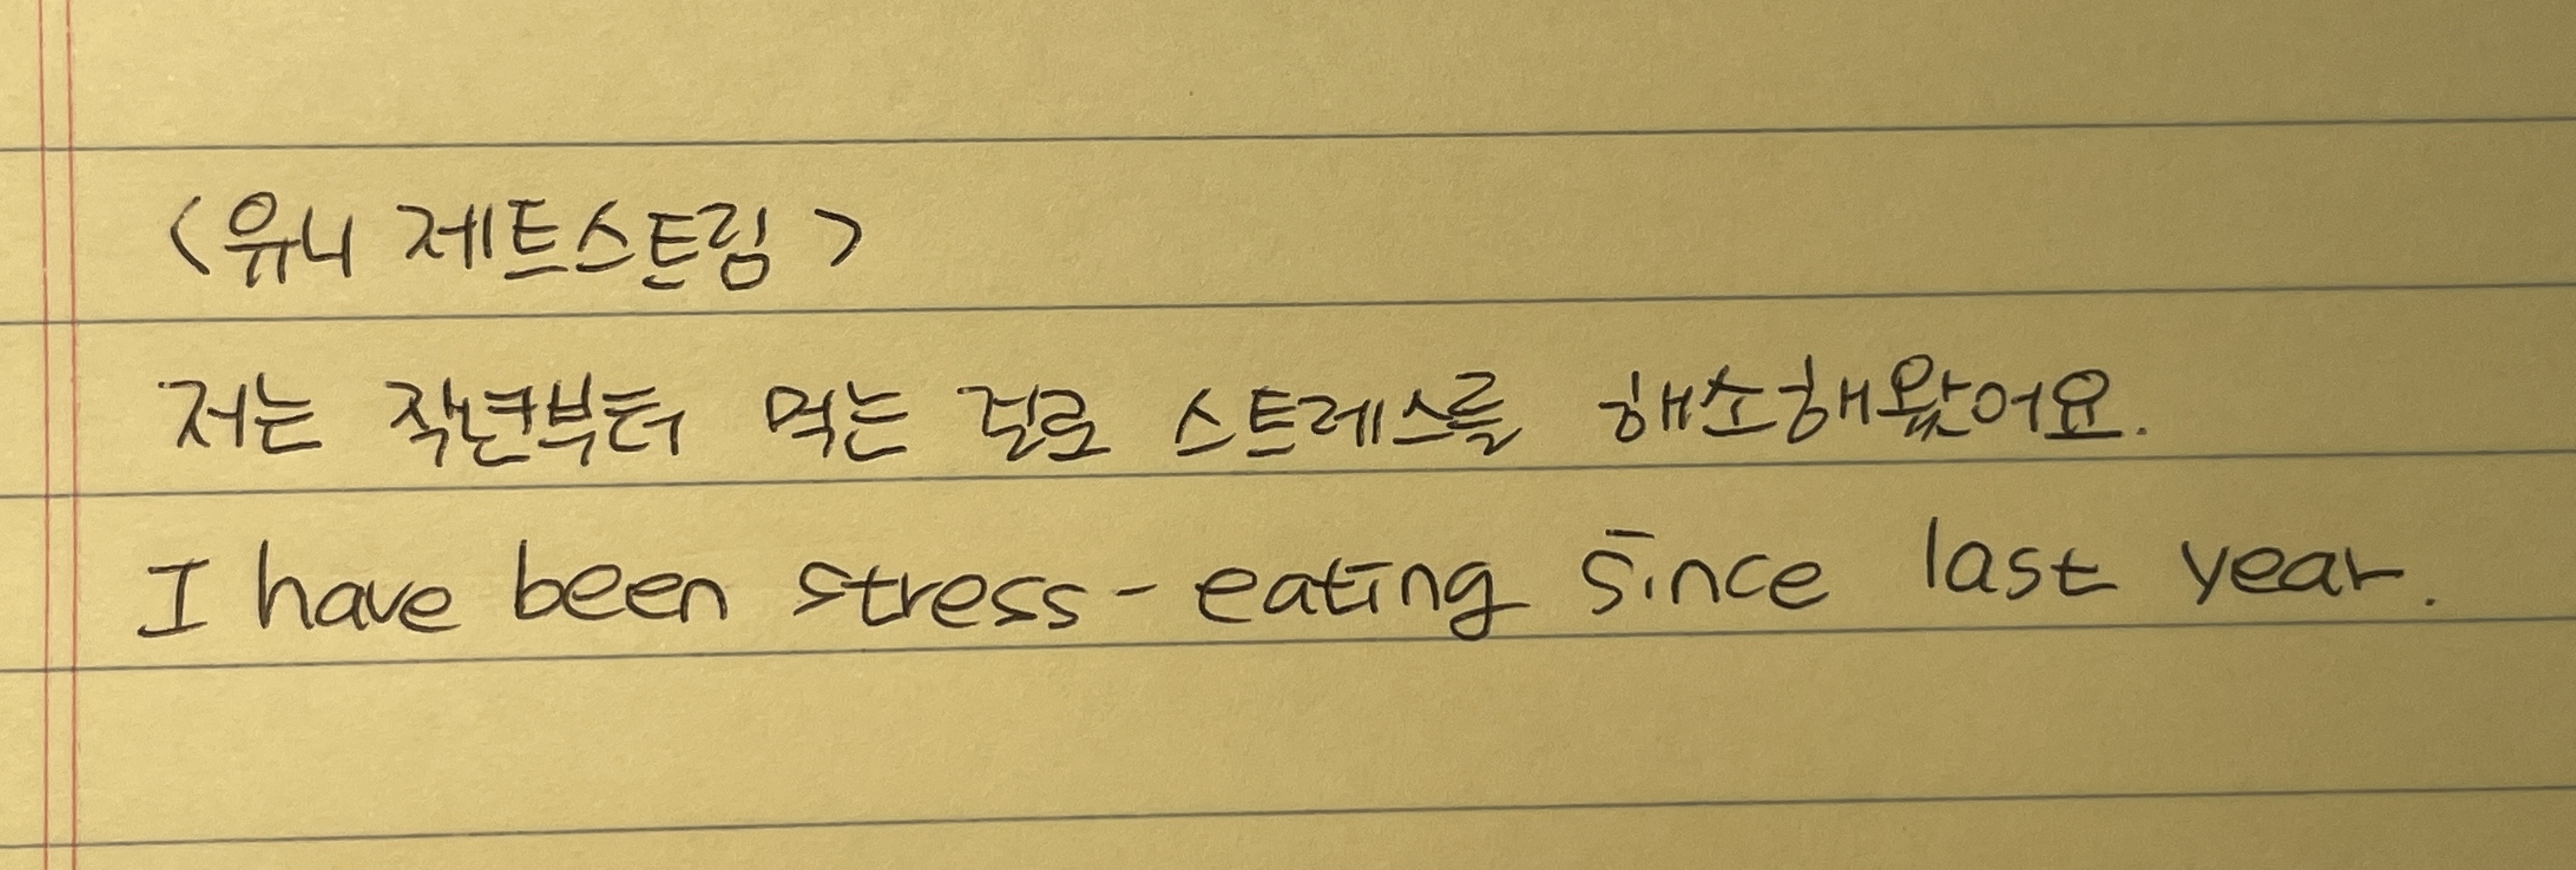 <유니 제트스트림>
저는 작년부터 먹는 걸로 스트레스를 해소해왔어요.
I have been stress-eating since last year.